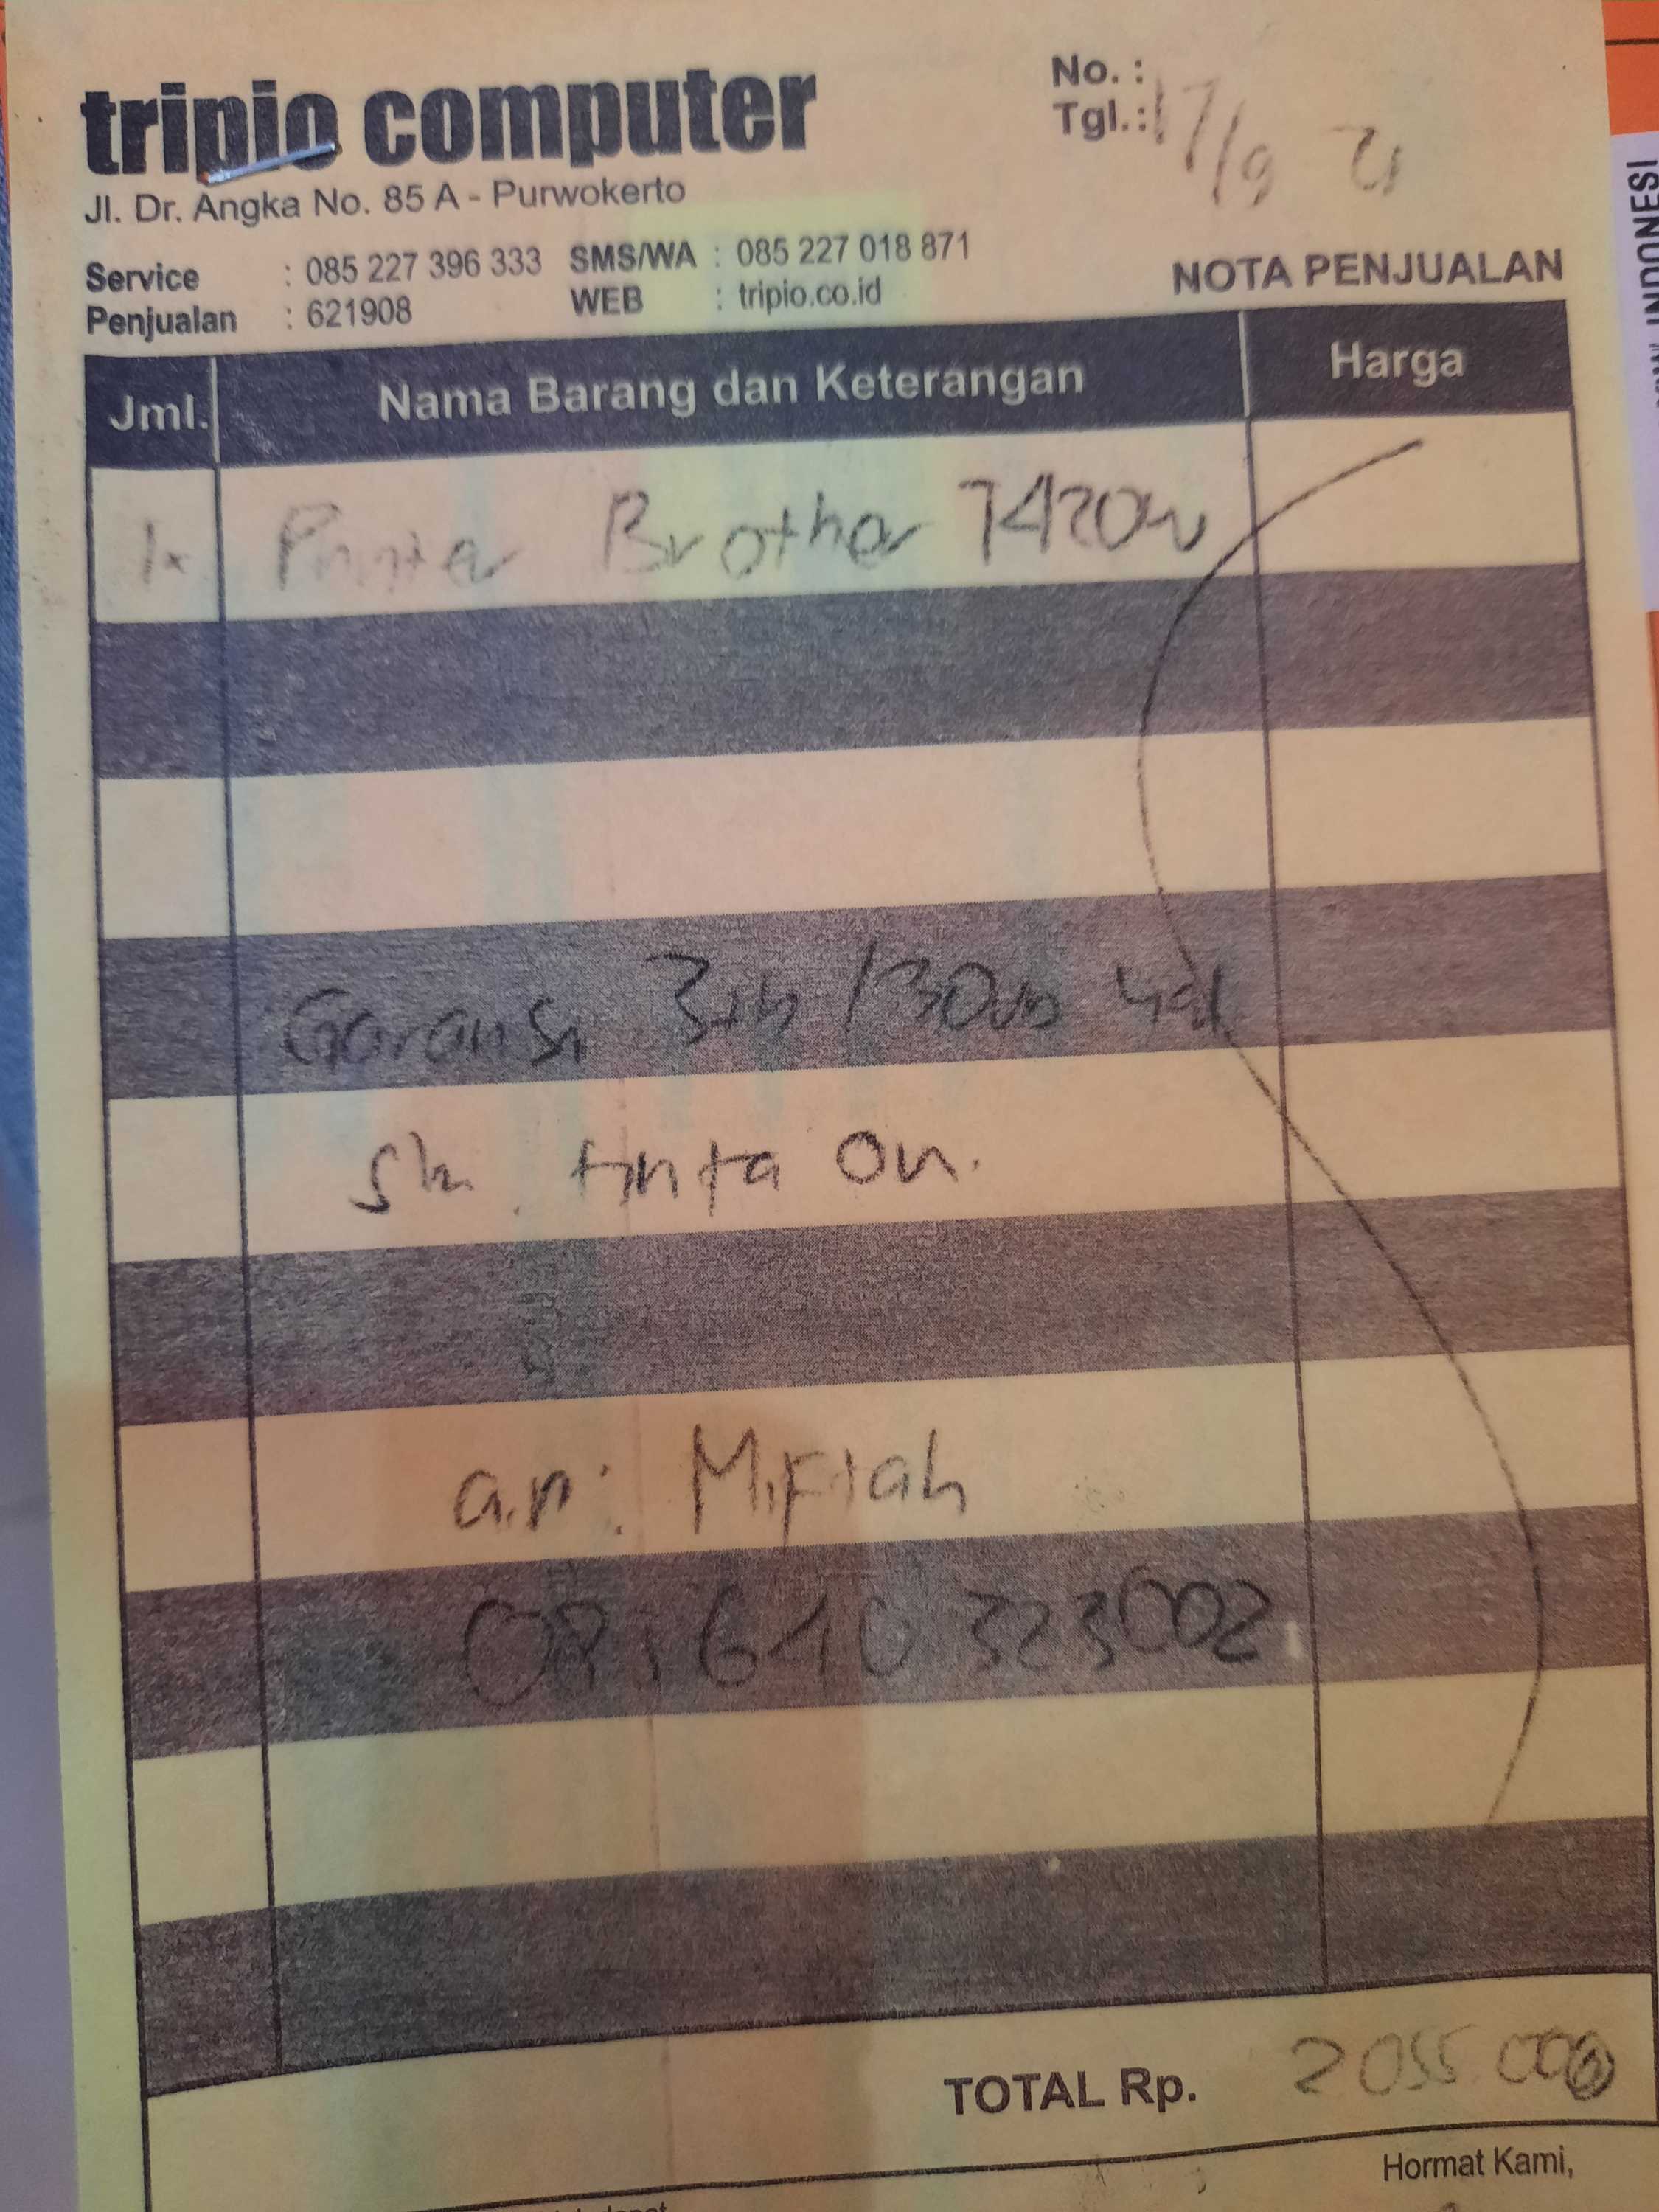 tripio computer
No. :
Tgl. : 17/9 21
Jl. Dr. Angka No. 85 A - Purwokerto
Service : 085 227 396 333 SMS/WA : 085 227 018 871
Penjualan : 621908 WEB : tripio.co.id
NOTA PENJUALAN
Jml. Nama Barang dan Keterangan Harga
1x Printer Brother T420w
Garansi 3th /30rb
tinta Ori.
a.n: Miftah
323002
TOTAL Rp. 2055.000
Hormat Kami,
INDONESI